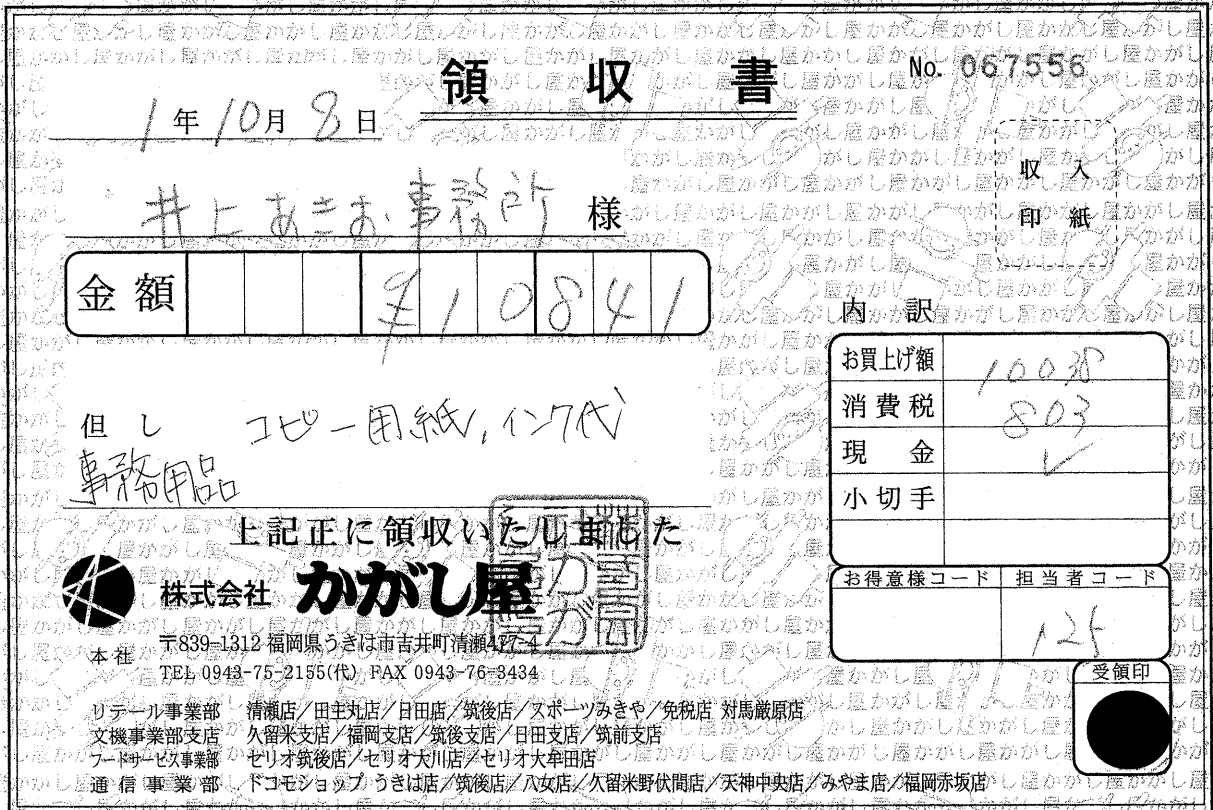 領収書
No. 067556
1年10月8日
収入
印紙
井上あきお事務所 様
金額 ¥10841
内訳
お買上げ額 10038
消費税 803
現金 ✓
小切手
但し コピー用紙、インク代
事務用品
上記正に領収いたしました
株式会社 かがし屋
お得意様コード 担当者コード
125
本社 〒839-1312 福岡県うきは市吉井町清瀬477-4
TEL 0943-75-2155(代) FAX 0943-76-3434
受領印
リテール事業部 清瀬店/田主丸店/日田店/筑後店/スポーツみきや/免税店 対馬厳原店
文機事業部支店 久留米支店/福岡支店/筑後支店/日田支店/筑前支店
フードサービス事業部 セリオ筑後店/セリオ大川店/セリオ大牟田店
通信事業部 ドコモショップ うきは店/筑後店/八女店/久留米野伏間店/天神中央店/みやま店/福岡赤坂店